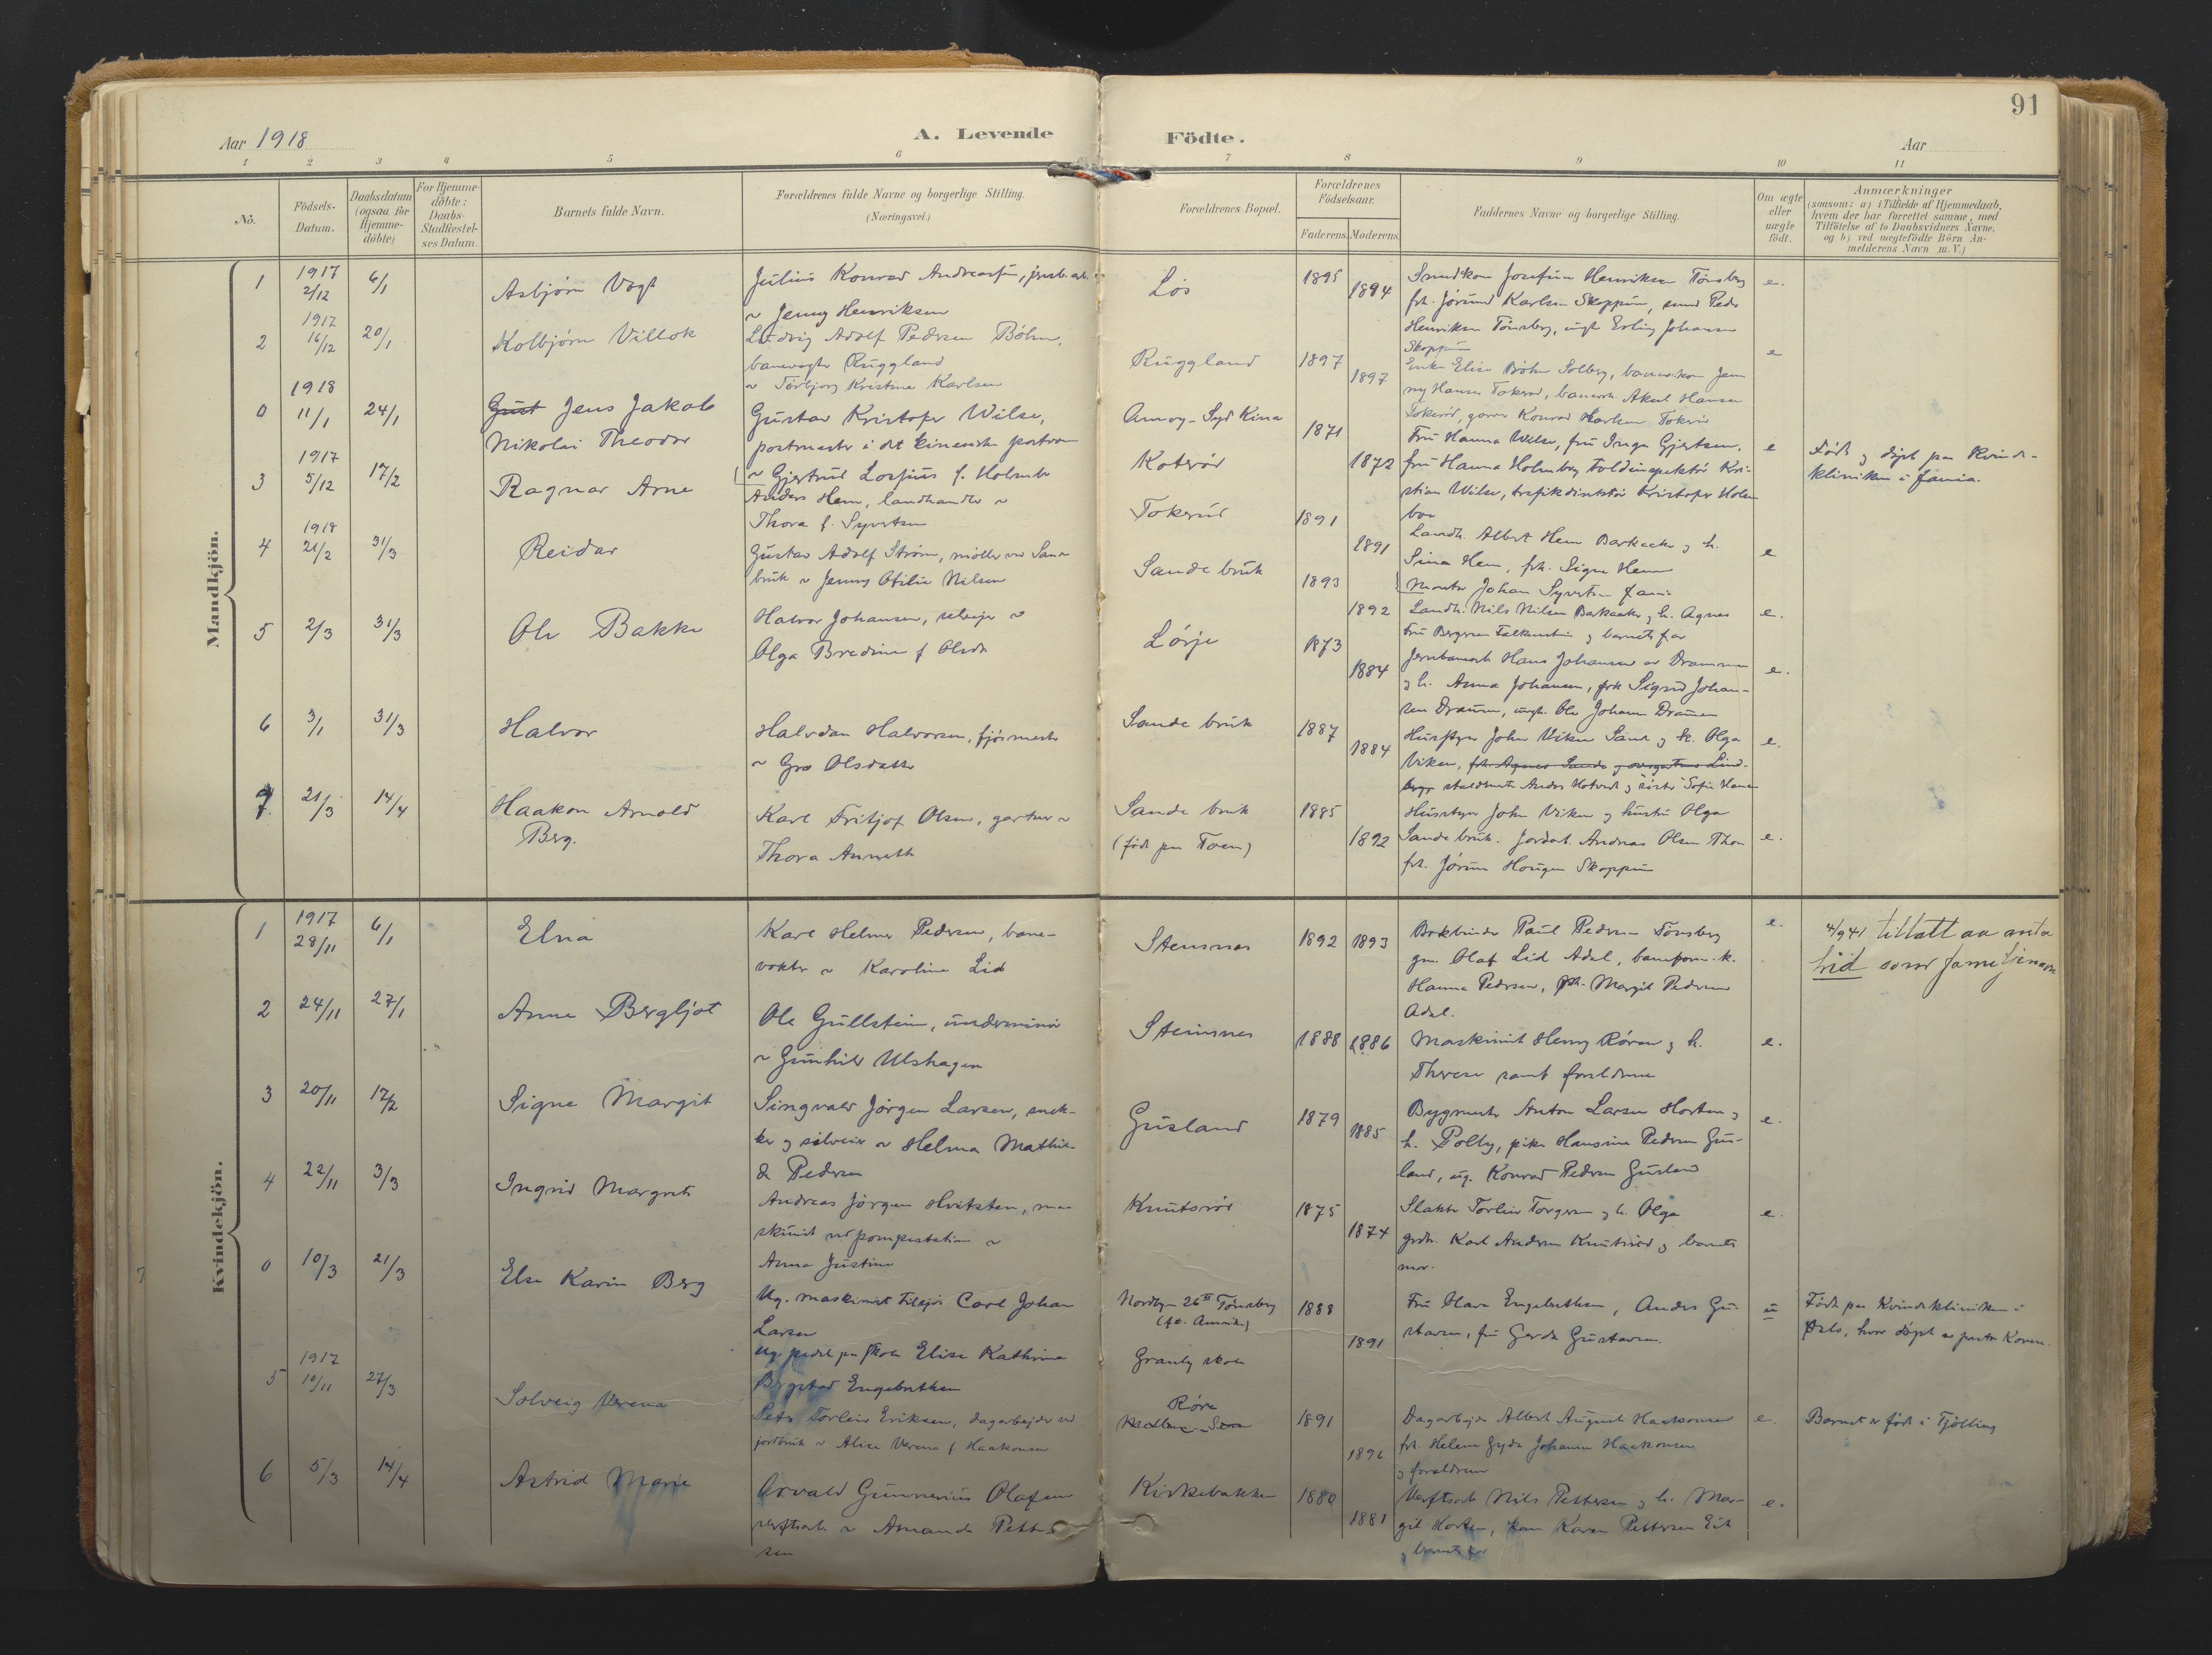 91
Aar 1918
A. Levende Födte.
Aar
1 2 3 4 5 6 7 8 9 10 11
Nö.
Födsels-Datum.
Daabsdatum (ogsaa for Hjemme-döbte)
For Hjemme-döbte: Daabs-Stadfæstel-ses Datum.
Barnets fulde Navn.
Forældrenes fulde Navne og borgerlige Stilling. (Næringsvei.)
Forældrenes Bopæl.
Forældrenes Födselsaar.
Faderens. Moderens.
Faddernes Navne og borgerlige Stilling.
Om ægte eller uægte födt.
Anmærkninger
(saasom: a) i Tilfælde af Hjemmedaab,
hvem der har forrettet samme, med
Tilföielse af to Daabsvidners Navne,
og b) ved uægtefödte Börn An-
melderens Navn m. V.)
Mandkjön.
1 1917 2/12 6/1 Asbjørn Vogt
Julius Konrad Andreassen,
Jenny Henriksen
Løs 1895 1894
Josefine Henriksen Tønsberg
frk. Jørund Karlsen Skoppum, smed Peder
Henriksen Tønsberg, ungk. Erling Johansen
Skoppum
e.
2 1917 16/12 20/1 Kolbjørn Villok
Ludvig Adolf Pedersen Bøhn,
banevogter Ruggland
Torbjørg Kristine Karlsen
Ruggland 1897 1897
Enke Elise Bøhn Solberg,
Hansen Tokerød, Hansen
e
0 1918 11/1 24/1 Gust Jens Jakob
Nikolai Theodor
Gustav Kristofer Wilse,
postmester i det kinesiske
Gjertrud
Amoy - Syd Kina 1871 1872
Fru Hanna Wilse, fru Inga Gjertsen,
fru Hanna Holmboe Toldinspektør Kri-
stian Wilse, trafikdirektør Kristofer Holm
boe
e
Født og døpt paa Kvinde-
kliniken i
3 1917 5/12 17/2 Ragnar Arne
Anders Hem, landhandler
Thora f. Syvertsen
Koterød
Tokerud 1891 1891
Landh. Albert Hem Barkaaker og h.
Sina Hem, frk. Signe Hem
Montør Johan Syvertsen
e
4 1918 21/2 31/3 Reidar
Gustav Adolf Strøm, møller ved Sande
bruk Jenny Otilie Nilsen
Sande bruk 1893 1892
Landh. Nils Nilsen Barkaaker, h. Agnes
Fru Bergersen Falkensten og barnets far
e.
5 2/3 31/3 Ole Bakke
Halvor Johansen, selveier
Olga Bredine f. Olsdt
Lørje 1873 1884
Jernbanearb Hans Johansen av Drammen
og h. Anna Johansen, frk Sigrid Johan-
sen Drammen, ungk. Ole Johansen Drammen
e.
6 3/1 31/3 Halvor
Halvdan Halvorsen, fjøsmester
Gro Olsdatter
Sande bruk 1887 1884
Husbestyrer John Viken Sande og h. Olga
Viken, frk. Agnes Sande
e.
7 21/3 14/4 Haakon Arnold
Berg.
Karl Fritjof Olsen, gartner
Thora Annette
Sande bruk 1885 1892
(født paa Toen)
Husbestyrer John Viken og hustru Olga
Sande bruk. Andreas Olsen
frk. Jørun Hougen Skoppum
e.
Kvindekjön.
1 1917 28/11 6/1 Elna
Karl Helmer Pedersen, bane-
vokter Karoline Lid
Stensnes 1892 1893
Bokbinder Paul Pedersen Tønsberg
gm. Olaf Lid Adal, baneform. k.
Hanna Pedersen, frk. Margit Pedersen
Adal.
e.
4/9 41 tillatt aa anta
Lid som familjenavn
2 24/11 27/1 Anne Bergljot
Ole Gullstein,
Gunhild Ulshagen
Stensnes 1888 1886
Maskinist Henry Røren og h.
Therese samt foreldrene
e.
3 20/11 17/2 Signe Margit
Singvald Jørgen Larsen, snek-
ker og selveier Helma Mathil-
de Pedersen
Gusland 1879 1885
Bygmester Anton Larsen Horten og
h. Polly, pike Hansine Pedersen Gus-
land, ug. Konrad Pedersen Gusland
e.
4 22/11 3/3 Ingrid Margrete
Andreas Jørgen Hvitsten, ma
skinist ved pumpestation
Anna Justine
Knutsrød 1875 1874
Slakter Torleiv Torgersen og h. Olga
grdbr. Karl Andersen Knutsrød og barnets
mor.
e.
0 10/3 21/3 Else Karin Berg
Ug. maskinist tilsjøs Carl Johan
Larsen
Ug. paa skole Elise Kathrine
Bergstad Engebretsen
Nordbyen 26 Tønsberg 1888 1891
(f.t. Amerika)
Granly skole
Fru Engebretsen, Anders Gu-
stavsen, fru Gerda Gustavsen.
u
Født paa Kvindekliniken i
Oslo, hvor døpt av pastor Koren.
5 1917 10/11 27/3 Solveig Verena
Peter Torleiv Eriksen, dagarbeider ved
jordbruk Alise Verena f Haakonsen
Røre 1891 1896
Dagarbeider Albert August Haakonsen
frk. Helene Gyda Johanne Haakonsen
og foreldrene
e.
Barnet er født i Tjølling
6 5/3 14/4 Astrid Marie
Orvald Gunnerius Olafsen
verftsarb. Amanda Petter-
sen
Kirkebakken 1880 1881
Verftsarb Nils Pettersen og h. Mar-
git Horten, Karen Pettersen Eik
og barnets far
e.